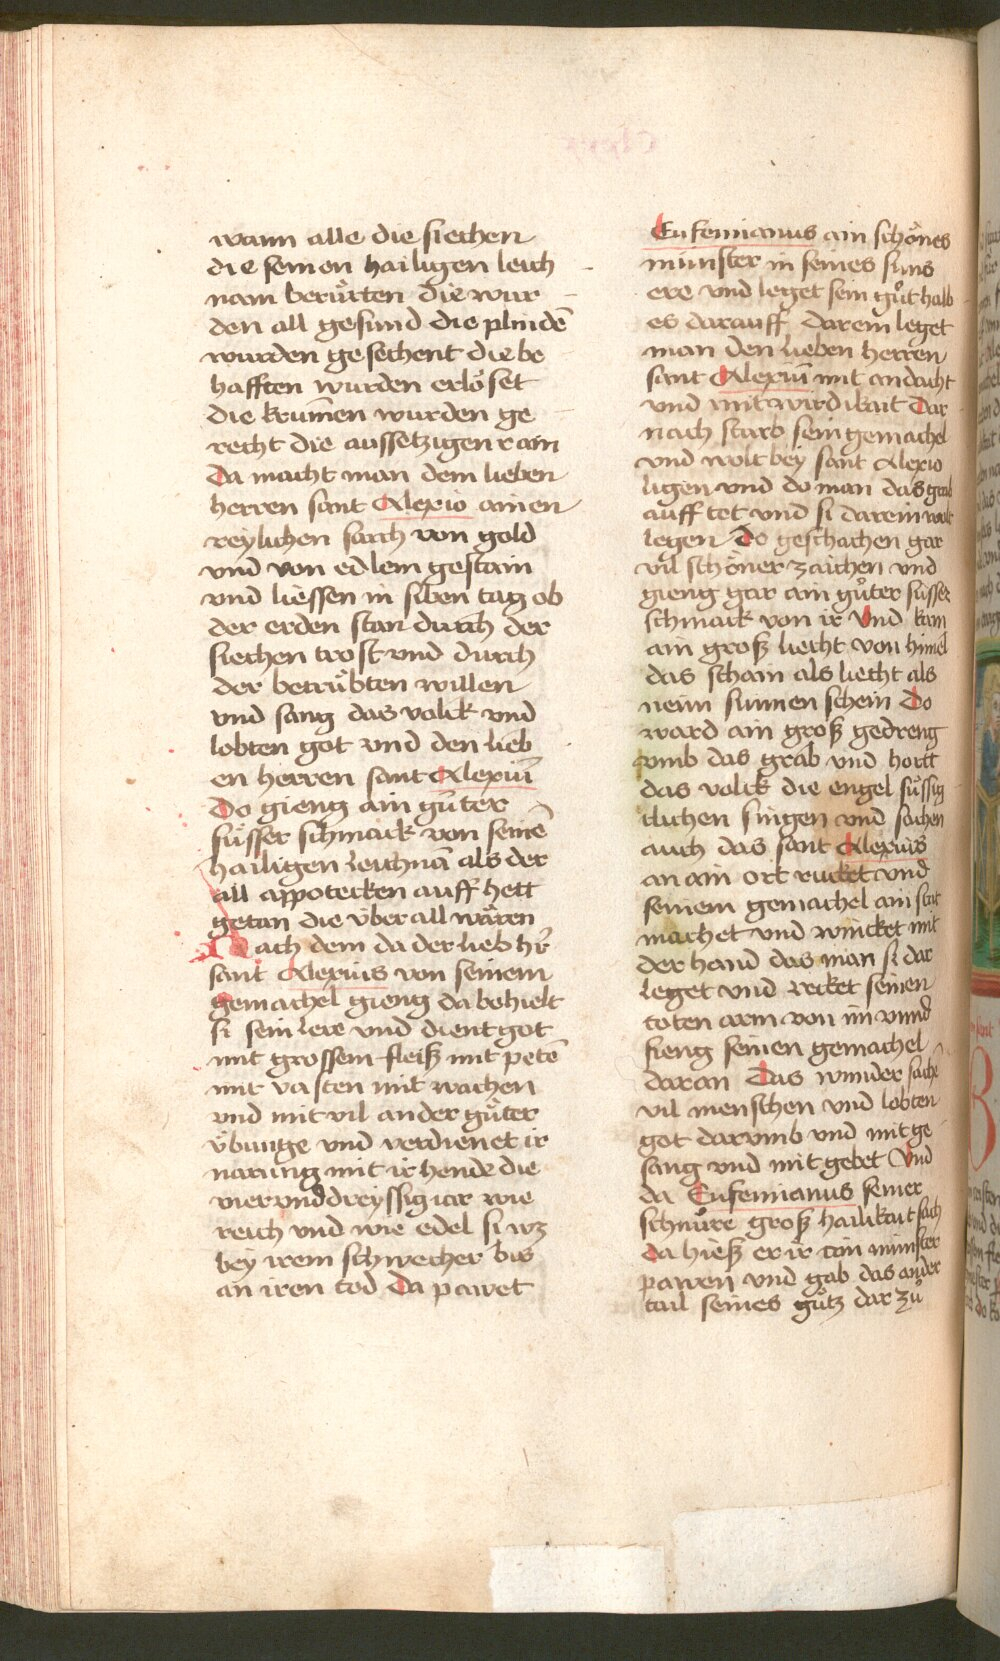 wann alle die siechen
die seinen hailigen leich
nam berůrten die wur
den all gesund die plindē
wurden gesechent die be
hafften wurden erlöset
die krum̄en wurden ge
recht die aussetzigen rain
Da macht man dem lieben
herren sant Alexio ainen
reylichen sarch von gold
vnd von edlem gestain
vnd liessen in siben tag ob
der erden stan durch der
siechen trost vnd durch
der betrůbten willen
vnd sang das volck vnd
lobten got vnd den lieb
en herren sant Alexiū
Do gieng ain gůter
süsser schmack von seinē
hailigen leichnā als der
all appotecken auff hett
getan die v̈ber all wären
Nach dem da der lieb hr̄
sant Alexius von seinem
gemachel gieng da behielt
si sein lere vnd dient got
mit grossem fleiß mit petē
mit vasten mit wachen
vnd mit vil ander gůter
v̈bunge vnd verdienet ir
narung mit ir hende die
vier vnd dreyssig iar wie
reich vnd wie edel si wz
bey irem schwecher bis
an iren tod Da pawet
Eufemianus ain schönes
münster in seines suns
ere vnd leget sein gůt halb
es darauff darein leget
man den lieben herren
sant Alexiū mit andacht
vnd mit wirdikait Dar
nach starb sein gemachel
vnd wolt bey sant Alexio
ligen vnd do man das grab
auff tet vnd si darein wolt
legen Do geschachen gar
vil schöner zaichen vnd
gieng gar ain gůter süsser
schmack von ir Vnd kam
ain groß liecht von himel
das schain als liecht als
neün sunnen schein Do
ward ain groß gedreng
vmb das grab vnd hortt
das volck die engel süssig
clichen singen vnd sachen
auch das sant Alexius
an ain ort rucket vnd
seinem gemachel ain stat
machet vnd wincket mit
der hand das man si dar
leget vnd recket seinen
toten arm von im vnnd
fieng seinen gemachel
daran Das wunder sache
vil menschen vnd lobten
got darvmb vnd mit ge
sang vnd mit gebet Vnd
da Eufemianus seiner
schnůre groß hailikait sach
da hieß er ir ain münster
pawen vnd gab das ander
tail seines gůtz dar zů